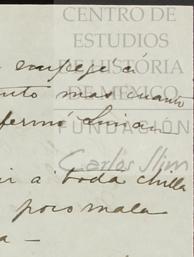 CENTRO DE
ESTUDIOS
DE HISTORIA
DE MÉXICO
FUNDACIÓN
Carlos Slim
empecé á
nto mas cuanto
fermó Luisa
r á toda chilla
poco mala
a —